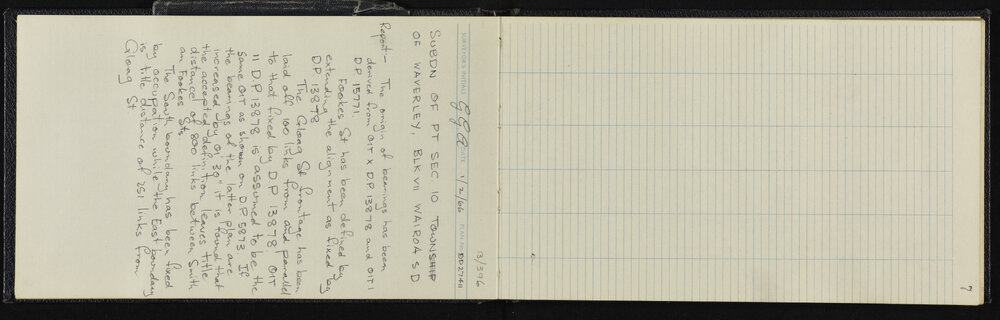 13/396
SURVEYORS INITIALS DATE 1/2/66 PLAN NO. DD 27411
SUBDN OF PT SEC 10 TOWNSHIP
OF WAVERLEY, BLK VII WAIROA S D
Report — The origin of bearings has been
derived from OIT X D.P. 13878 and OIT I
DP 15771.
Fookes St has been defined by
extending the alignment as fixed by
D.P. 13878
The Gloag St frontage has been
laid off 100 links from and parallel
to that fixed by D.P 13878 OIT
II D.P. 13878 is assumed to be the
same OIT as shown on D.P 5873 If
the bearings of the latter plan are
increased by 01' 30" it is found that
the accepted definition leaves title
distance of 800 links between Smith
an Fookes Sts
The South boundary has been fixed
by occupation while the East boundary
is title distance of 251 links from
Gloag St
7